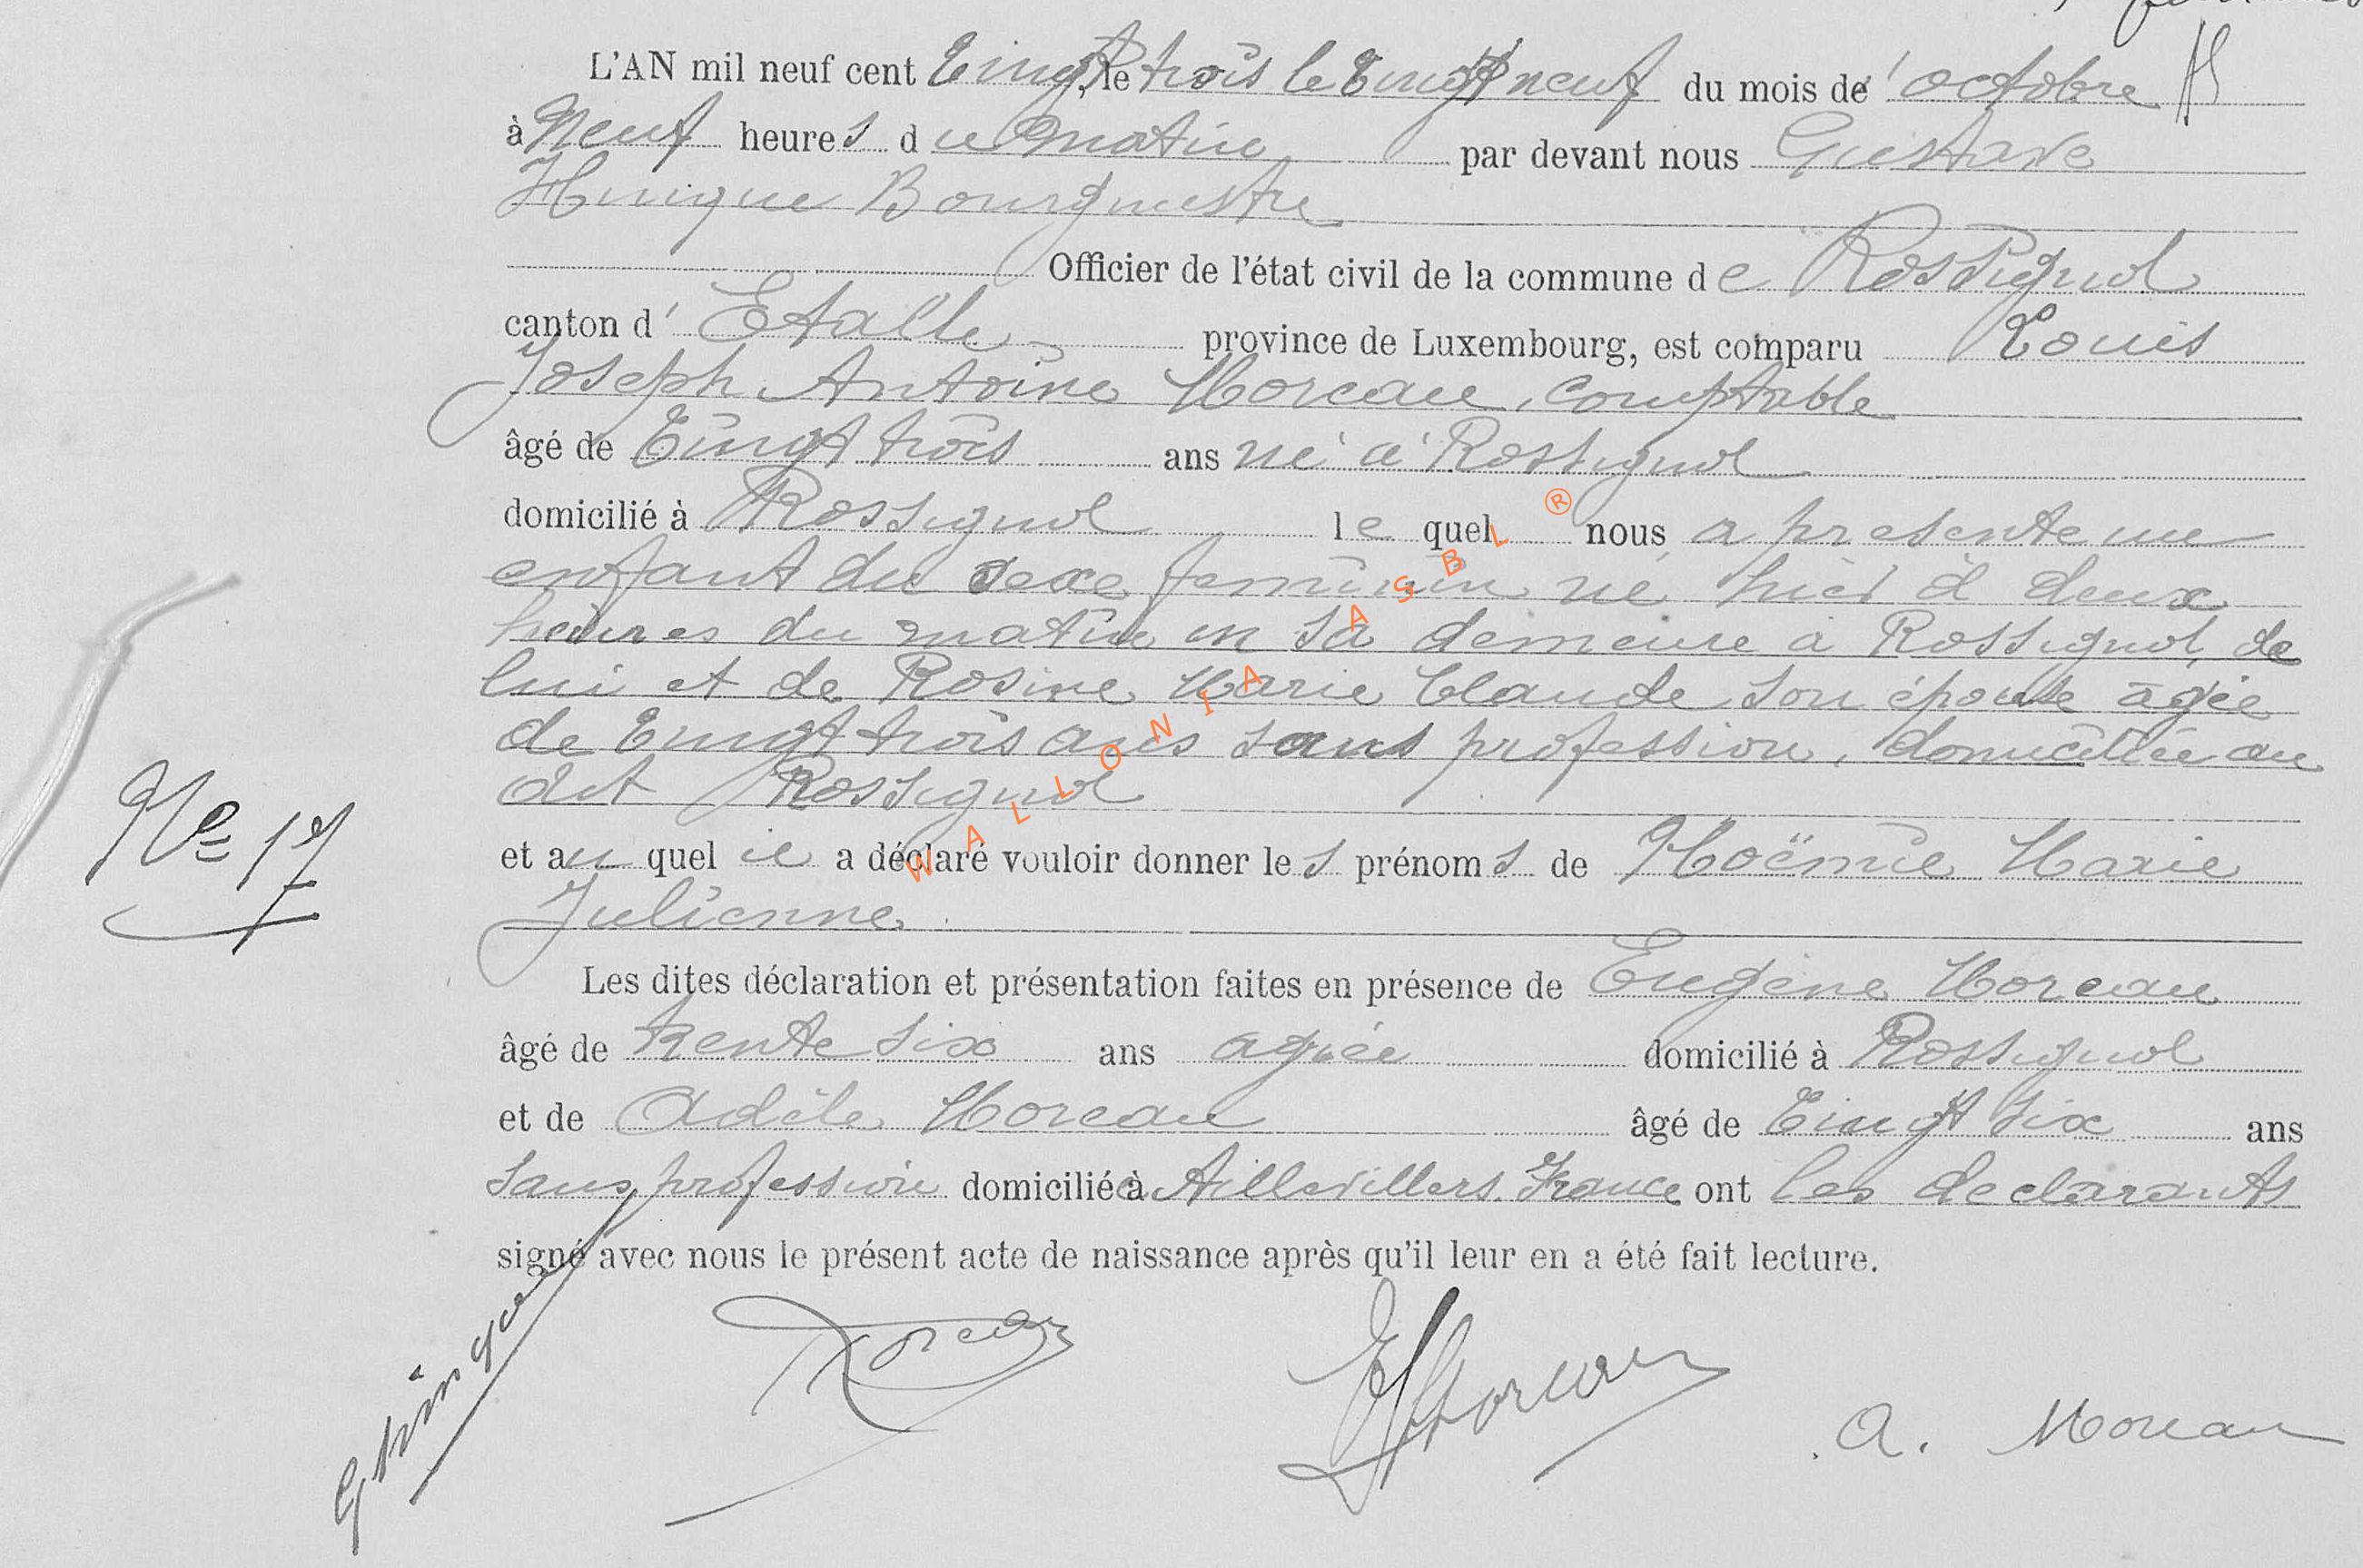 L'AN mil neuf cent Vingt, le trois le Vingt neuf du mois de' octobre
à Neuf heures du matin par devant nous Gustave
Hinique Bourgmestre
Officier de l'état civil de la commune de Rossignol
canton d' Etalle province de Luxembourg, est comparu Louis
Joseph Antoine Moreau, comptable
âgé de Vingt trois ans né à Rossignol
domicilié à Rossignol le quel nous a presente un
enfant du sexe feminin né hier à deux
heures du matin en sa demeure a Rossignol, de
lui et de Rosine Marie Claude son épouse agée
de Vingt trois ans sans profession, domiciliée au
dit Rossignol
Nº 17
et au quel il a déclaré vouloir donner les prénoms de Noëmie Marie
Julienne
Les dites déclaration et présentation faites en présence de Eugène Moreau
âgé de trente six ans domicilié à Rossignol
et de Adèle Moreau âgé de Vingt six ans
sans profession domiciliée à Aillevillers France ont les declarants
signé avec nous le présent acte de naissance après qu'il leur en a été fait lecture.
GHinique
Moreau
EMoreau
A. Moreau
WALLONIA ASBL ®